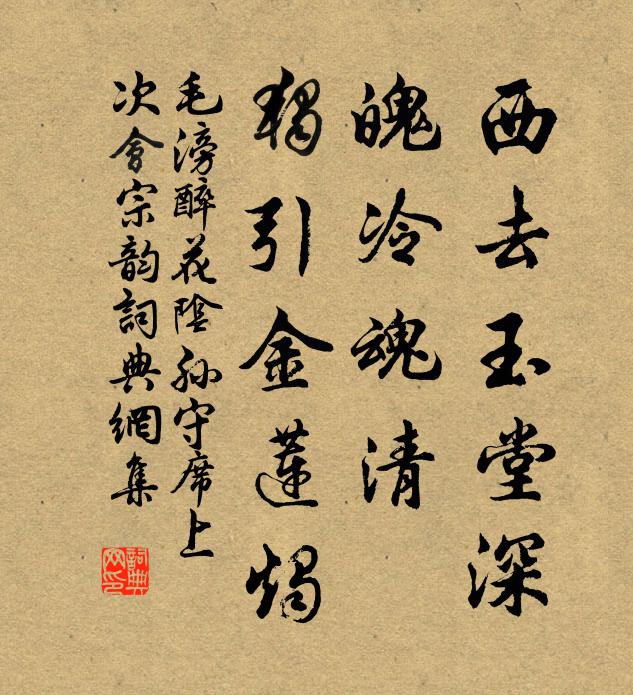 西去玉堂深
魄冷魂清
獨引金蓮燭
毛滂醉花陰孙守席上
次會宗韵詞典網集
詞典网印